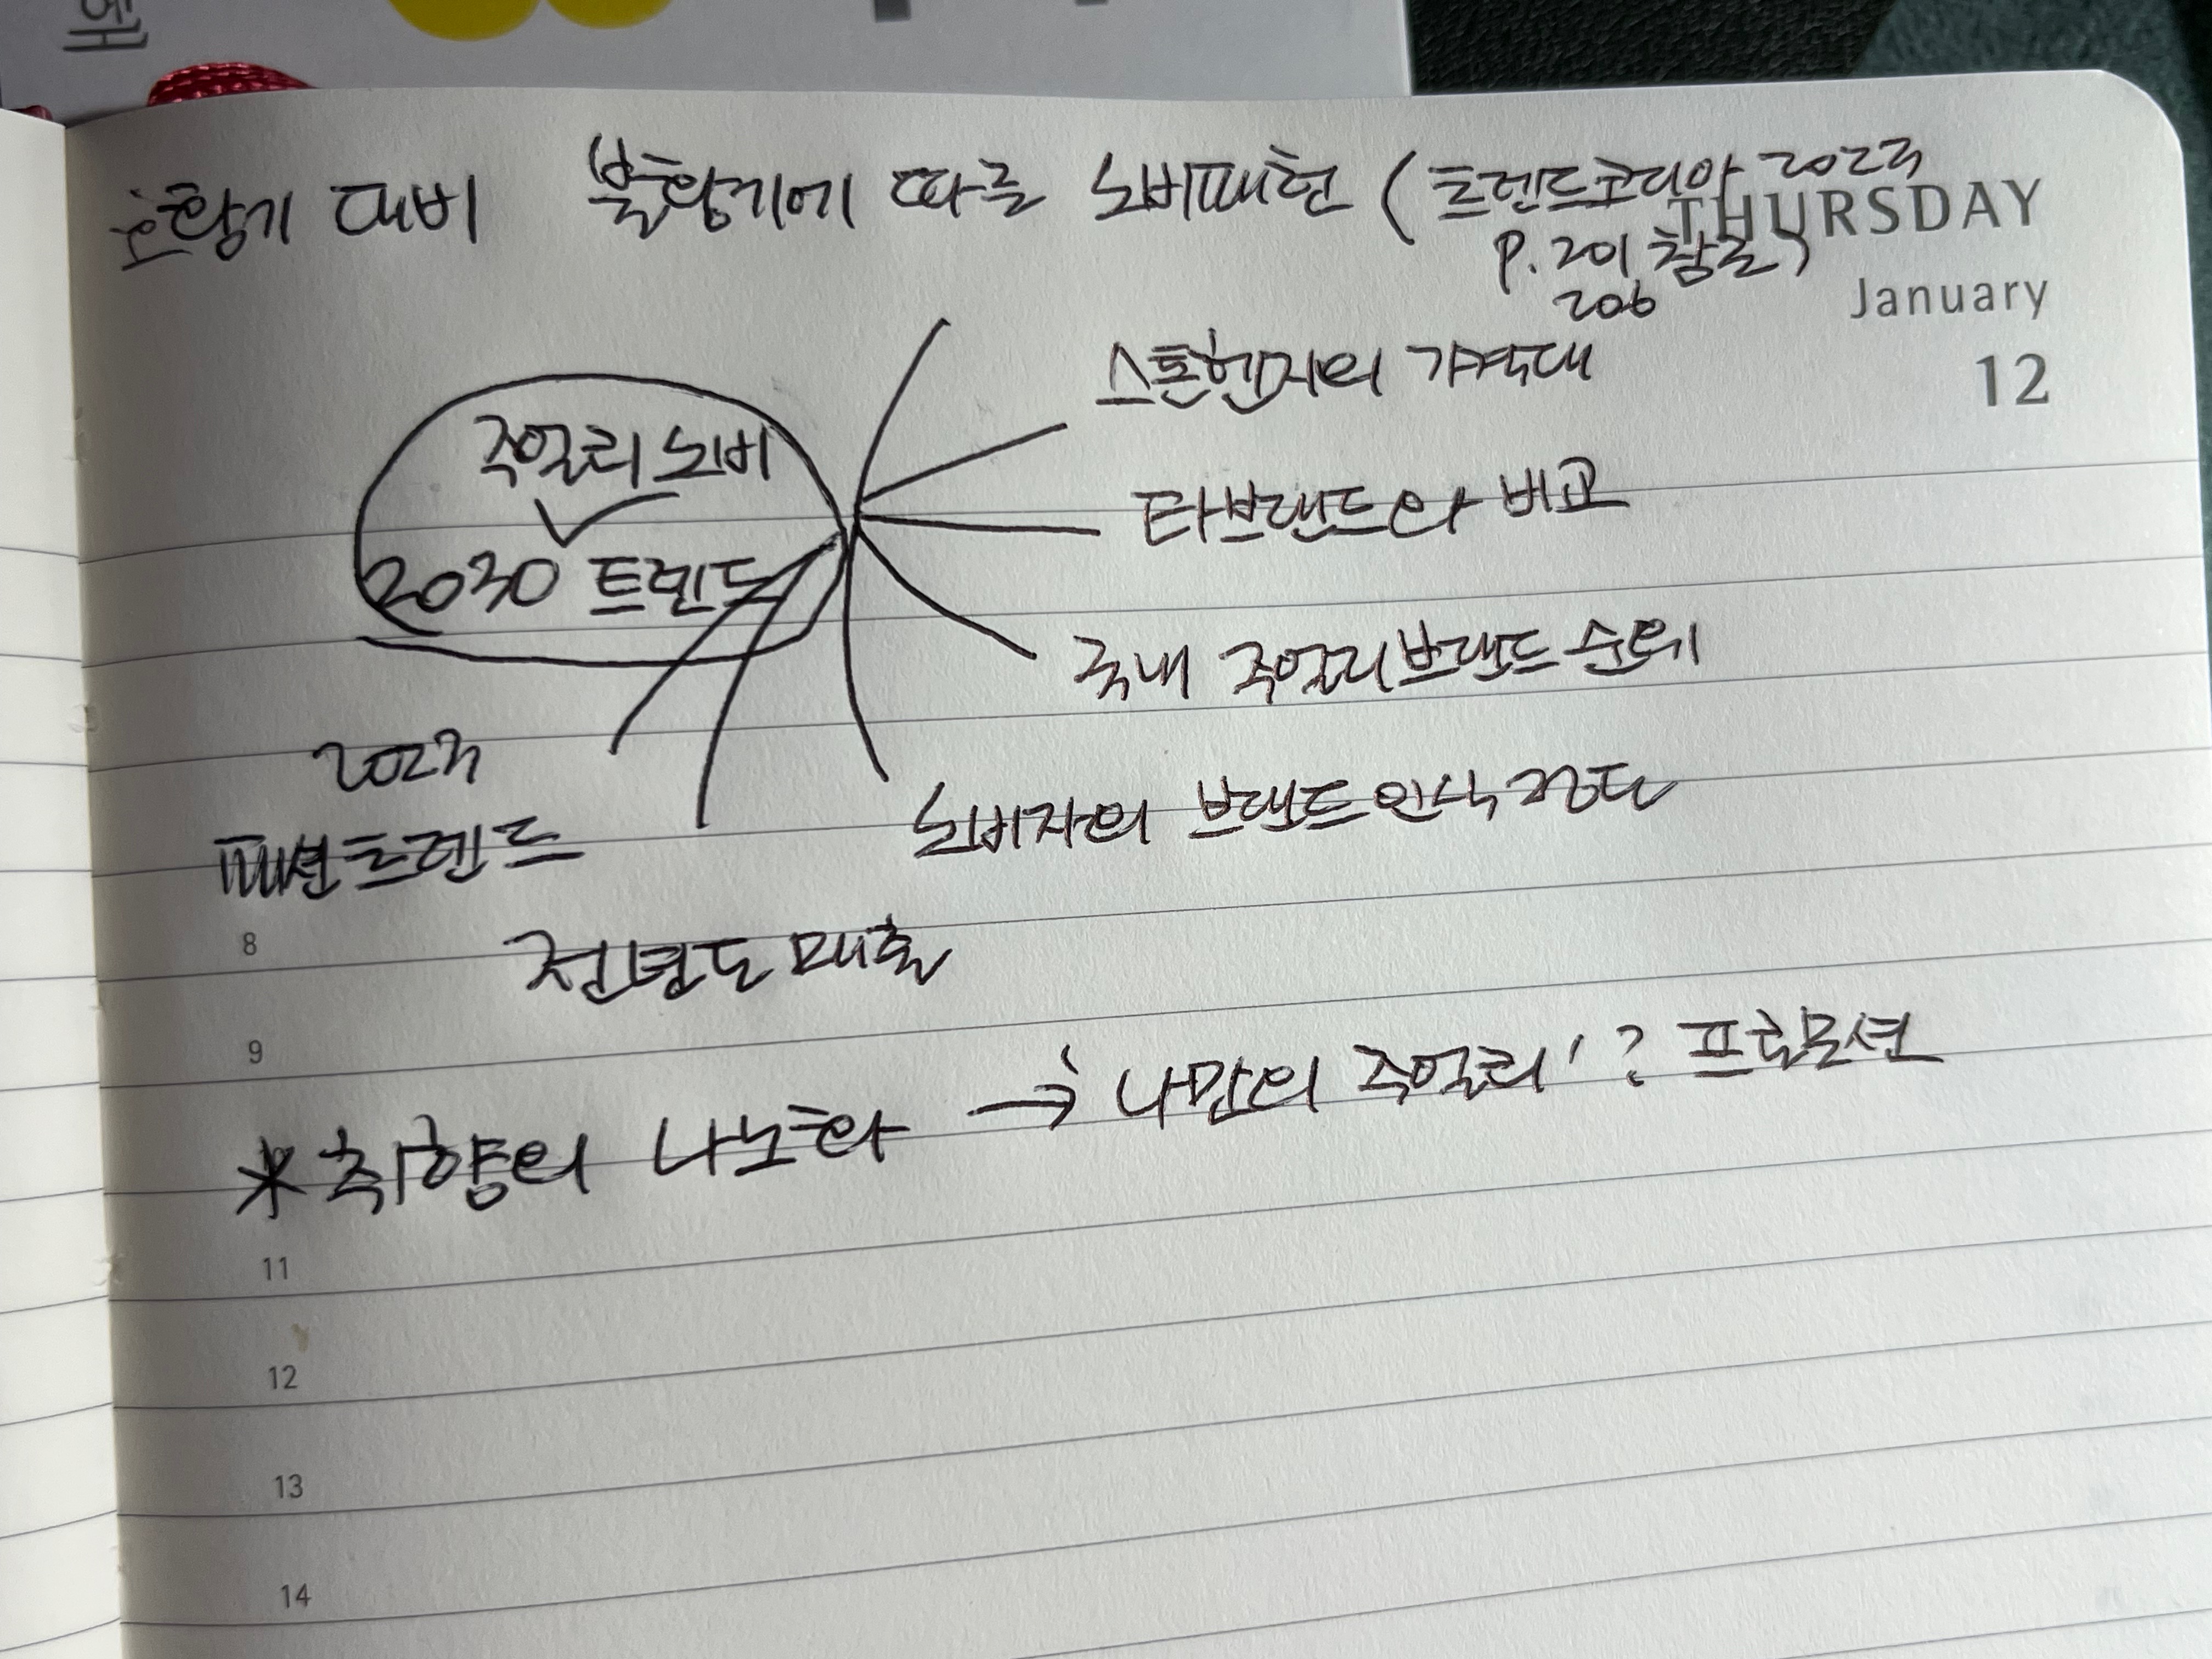 호황기 대비 불황기에 따른 소비패턴 (트렌드코리아 2023
P. 201, 참조)
206
THURSDAY
January
12
스톤헨지의 가격대
주얼리 소비
타브랜드와 비교
2030 트렌드
국내 주얼리브랜드 순위
2023
패션트렌드
소비자의 브랜드 인식 정도
8
전년도 매출
9
*취향의 나노화 → '나만의 주얼리'? 프로모션
11
12
13
14